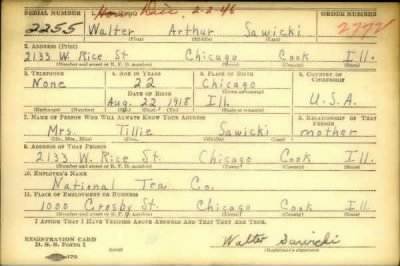 Hon. Disc. 2-2-46
SERIAL NUMBER 1. NAME (Print) ORDER NUMBER
2255 Walter Arthur Sawicki 2772
(First) (Middle) (Last)
2. ADDRESS (Print)
2133 W. Rice St. Chicago Cook Ill.
(Number and street or R. F. D. number) (Town) (County) (State)
3. TELEPHONE 4. AGE IN YEARS 5. PLACE OF BIRTH 6. COUNTRY OF CITIZENSHIP
None 22 Chicago
(Town or county)
DATE OF BIRTH
Aug. 22 1918 Ill. U.S.A.
(Exchange) (Number) (Mo.) (Day) (Yr.) (State or country)
7. NAME OF PERSON WHO WILL ALWAYS KNOW YOUR ADDRESS 8. RELATIONSHIP OF THAT PERSON
Mrs. Tillie Sawicki mother
(Mr., Mrs., Miss) (First) (Middle) (Last)
9. ADDRESS OF THAT PERSON
2133 W. Rice St. Chicago Cook Ill.
(Number and street or R. F. D. number) (Town) (County) (State)
10. EMPLOYER'S NAME
National Tea Co.
11. PLACE OF EMPLOYMENT OR BUSINESS
1000 Crosby St. Chicago Cook Ill.
(Number and street or R. F. D. number) (Town) (County) (State)
I AFFIRM THAT I HAVE VERIFIED ABOVE ANSWERS AND THAT THEY ARE TRUE.
REGISTRATION CARD
D. S. S. Form 1
Walter Sawicki
(Registrant's signature)